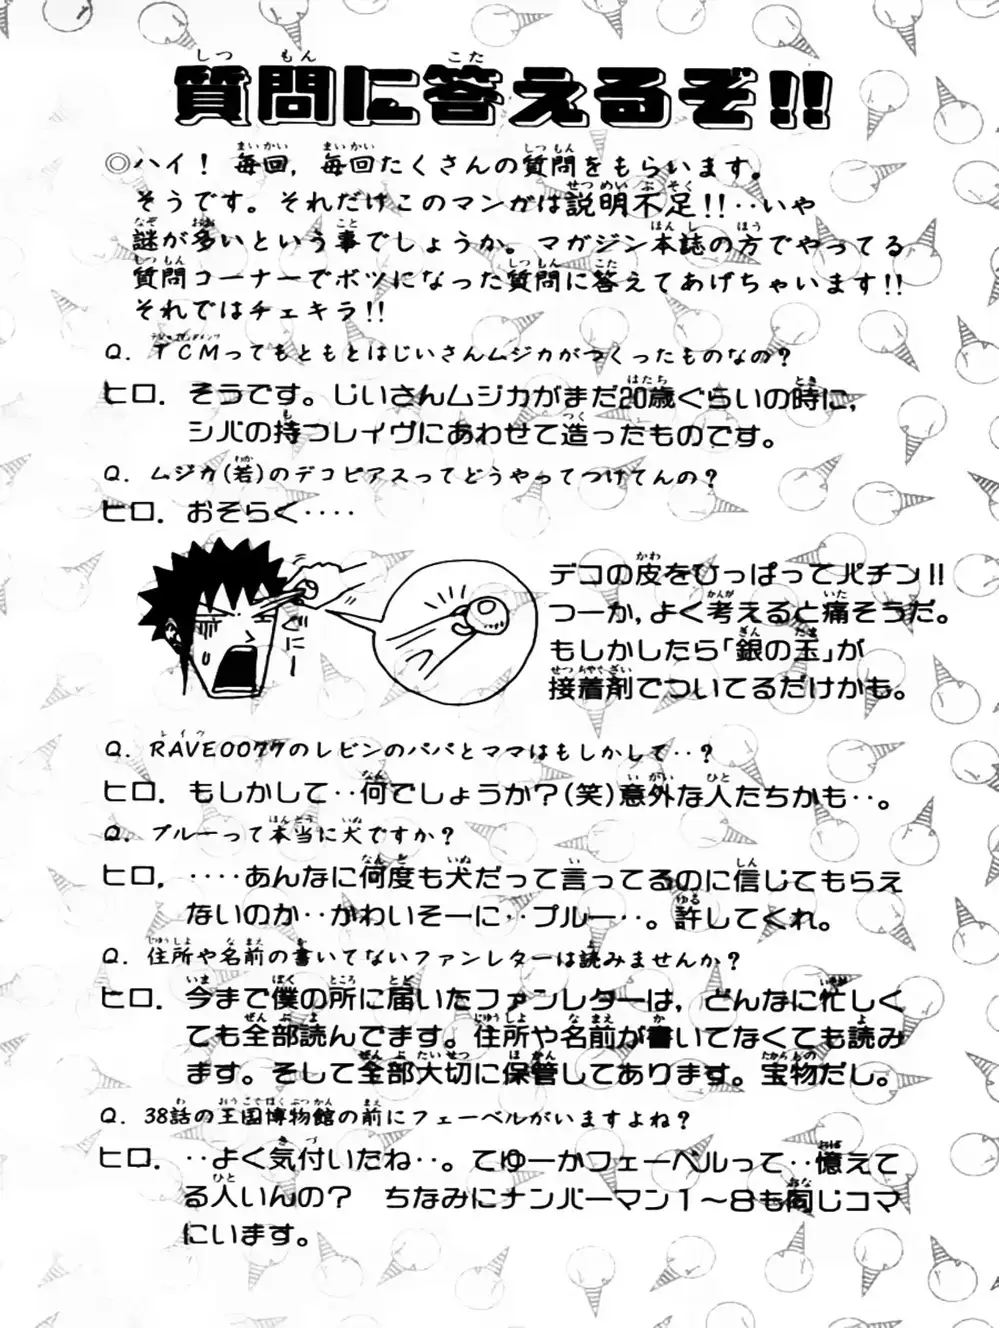 質問に答えるぞ!!
◎ハイ! 毎回,毎回たくさんの質問をもらいます。
そうです。それだけこのマンガは説明不足!!‥いや
謎が多いという事でしょうか。マガジン本誌の方でやってる
質問コーナーでボツになった質問に答えてあげちゃいます!!
それではチェキラ!!
Q. TCMってもともとはじいさんムジカがつくったものなの?
ヒロ. そうです。じいさんムジカがまだ20歳ぐらいの時に,
シバの持つレイヴにあわせて造ったものです。
Q. ムジカ(若)のデコピアスってどうやってつけてんの?
ヒロ. おそらく‥‥
デコの皮をひっぱってバチン!!
つーか,よく考えると痛そうだ。
もしかしたら「銀の玉」が
接着剤でついてるだけかも。
Q. RAVE0077のレビンのパパとママはもしかして‥?
ヒロ. もしかして‥何でしょうか?(笑)意外な人たちかも‥。
Q. プルーって本当に犬ですか?
ヒロ. ‥‥あんなに何度も犬だって言ってるのに信じてもらえ
ないのか‥かわいそーに‥プルー‥。許してくれ。
Q. 住所や名前の書いてないファンレターは読みませんか?
ヒロ. 今まで僕の所に届いたファンレターは,どんなに忙しく
ても全部読んでます。住所や名前が書いてなくても読み
ます。そして全部大切に保管してあります。宝物だし。
Q. 38話の王国博物館の前にフェーベルがいますよね?
ヒロ. ‥よく気付いたね‥。てゆーかフェーベルって‥憶えて
る人いんの? ちなみにナンバーマン1〜8も同じコマ
にいます。